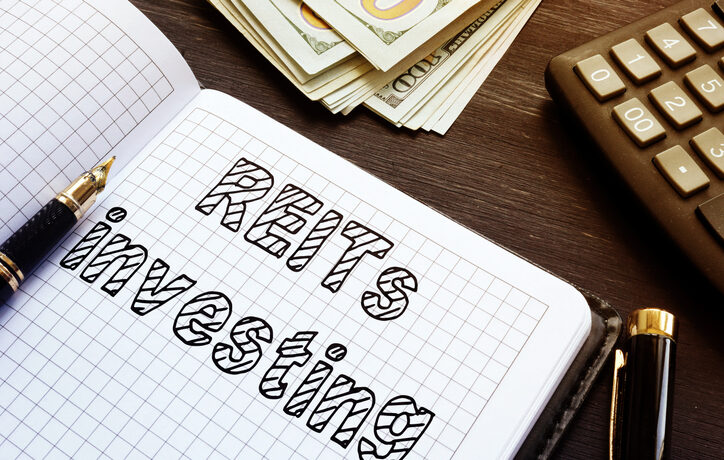 REITs
investing
100
0
1
4
7
00
2
5
3